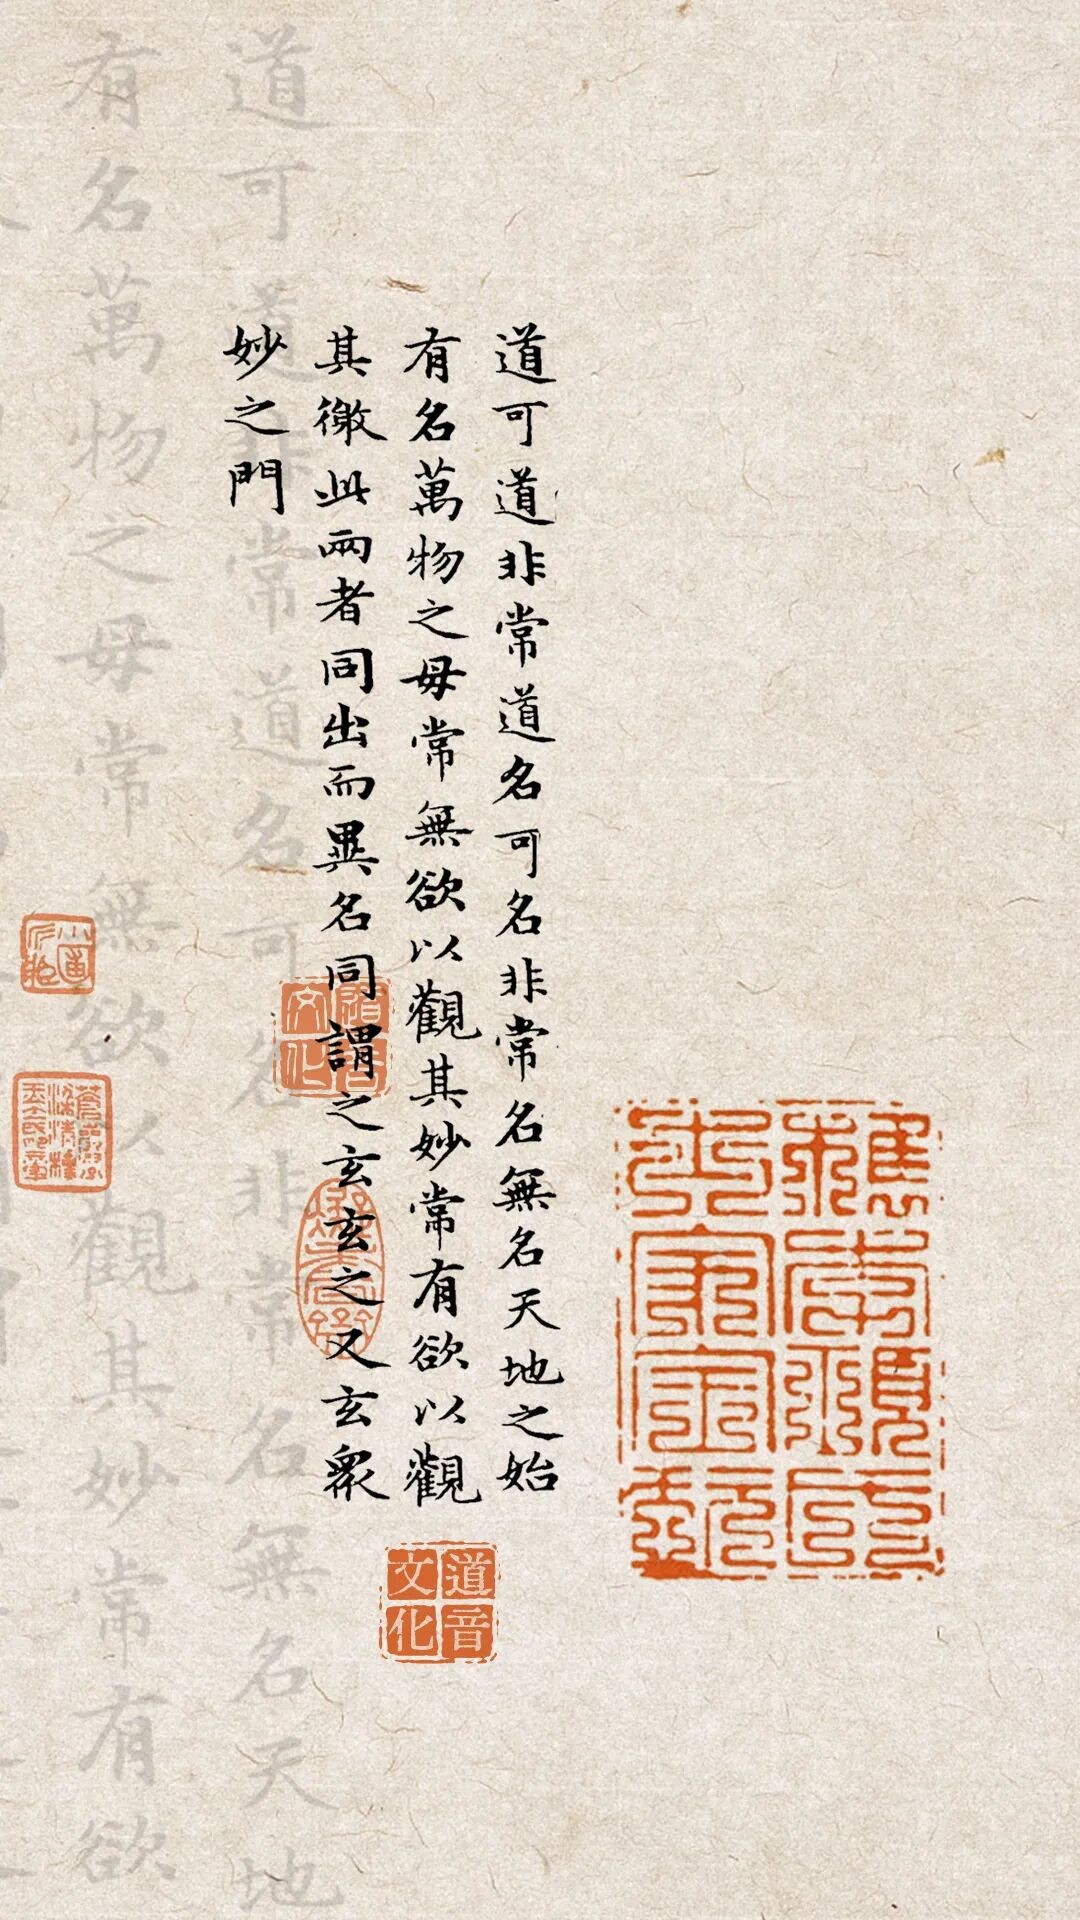 道可道非常道名可名非常名無名天地之始
有名萬物之母常無欲以觀其妙常有欲以觀
其徼此兩者同出而異名同謂之玄玄之又玄衆
妙之門
道音
文化
道可道非常道名可名非常名無名天地
有名萬物之母常無欲以觀其妙常有欲